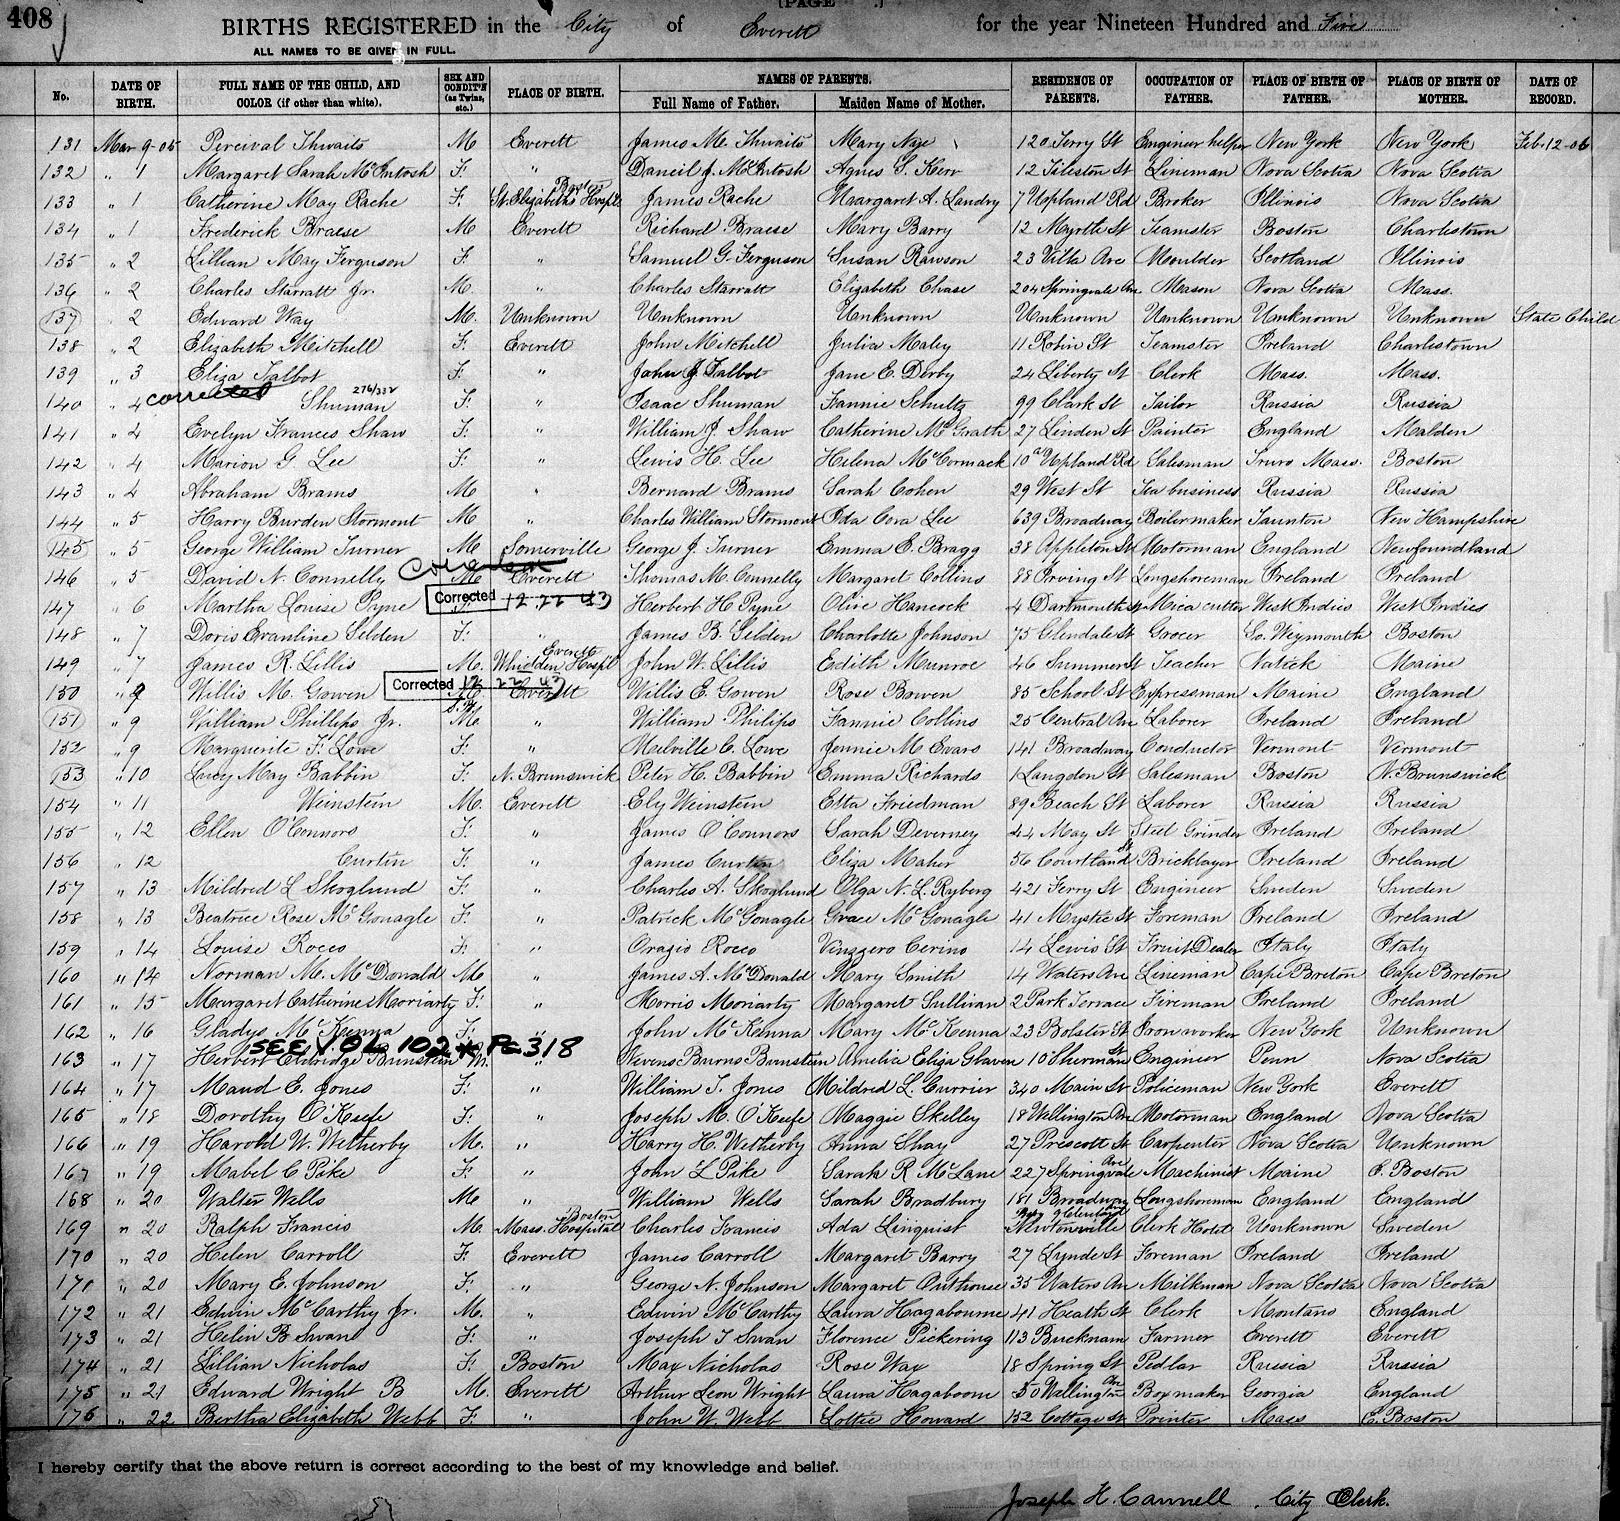 408
BIRTHS REGISTERED in the City of Everett for the year Nineteen Hundred and Five
ALL NAMES TO BE GIVEN IN FULL.
No. DATE OF BIRTH. FULL NAME OF THE CHILD, AND COLOR (if other than white). SEX AND CONDIT'N (as Twins, etc.) PLACE OF BIRTH. NAMES OF PARENTS. Full Name of Father. Maiden Name of Mother. RESIDENCE OF PARENTS. OCCUPATION OF FATHER. PLACE OF BIRTH OF FATHER. PLACE OF BIRTH OF MOTHER. DATE OF RECORD.
131 Mar 9-05 Percival Thwaits M Everett James M. Thwaits Mary Nye 120 Ferry St Engineer helper New York New York Feb. 12-06
132 " 1 Margaret Sarah McIntosh F. " Daneil J. McIntosh Agnes S. Kerr 12 Tileston St Lineman Nova Scotia Nova Scotia
133 " 1 Catherine May Rache F. St. Elizabeths Hospt Boston James Rache Margaret A. Landry 7 Upland Rd Broker Illinois Nova Scotia
134 " 1 Frederick Braese M Everett Richard Braese Mary Barry 12 Myrtle St Teamster Boston Charlestown
135 " 2 Lillian May Ferguson F. " Samuel G. Ferguson Susan Rawson 23 Villa Ave Moulder Scotland Illinois
136 " 2 Charles Starratt Jr. M. " Charles Starratt Elizabeth Chase 204 Springvale Ave Mason Nova Scotia Mass.
137 " 2 Edward Way M. Unknown Unknown Unknown Unknown Unknown Unknown Unknown State Child
138 " 2 Elizabeth Mitchell F. Everett John Mitchell Julia Maley 11 Robin St Teamster Ireland Charlestown
139 " 3 Eliza Talbot F. " John J Talbot Jane E. Derby 24 Liberty St Clerk Mass. Mass.
140 " 4 corrected Shuman 276/332 F. " Isaac Shuman Fannie Schultz 99 Clark St Tailor Russia Russia
141 " 4 Evelyn Frances Shaw F. " William J Shaw Catherine McGrath 27 Linden St Painter England Malden
142 " 4 Marion G. Lee F. " Lewis H. Lee Helena McCormack 10 Upland Rd Salesman Truro Mass. Boston
143 " 4 Abraham Brams M " Bernard Brams Sarah Cohen 29 West St Tea business Russia Russia
144 " 5 Harry Burden Stormont M " Charles William Stormont Ida Cora Lee 639 Broadway Boilermaker Taunton New Hampshire
145 " 5 George William Turner M Somerville George J. Turner Emma E. Bragg 38 Appleton St Motorman England Newfoundland
146 " 5 David N. Connelly M Everett Thomas M. Connelly Margaret Collins 88 Irving St Longshoreman Ireland Ireland
147 " 6 Martha Louise Payne F. Corrected 12 22 43 Herbert H Payne Olive Hancock 4 Dartmouth St Mica cutter West Indies West Indies
148 " 7 Doris Evanline Selden F. " James B. Selden Charlotte Johnson 75 Glendale St Grocer So. Weymouth Boston
149 " 7 James R. Lillis M. Whidden Hospt Everett John W. Lillis Edith Munroe 46 Summer St Teacher Natick Maine
150 " 9 Willis M. Gowen Corrected 12 22 43 M. Everett Willis E. Gowen Rose Bowen 85 School St Expressman Maine England
151 " 9 William Phillips Jr. S.B. M. " William Philips Fannie Collins 25 Central Ave Laborer Ireland Ireland
152 " 9 Marguerite F. Lowe F. " Melville C. Lowe Jennie M Evars 141 Broadway Conductor Vermont Vermont
153 " 10 Lucy May Babbin F. N. Brunswick Peter H. Babbin Emma Richards 1 Langdon St Salesman Boston N. Brunswick
154 " 11 Weinstein M. Everett Ely Weinstein Etta Friedman 89 Beach St Laborer Russia Russia
155 " 12 Ellen O'Connors F. " James O'Connors Sarah Deverney 44 May St Steel Grinder Ireland Ireland
156 " 12 Curtin F. " James Curtin Eliza Maher 56 Courtland St Bricklayer Ireland Ireland
157 " 13 Mildred L Skoglund F. " Charles A. Skoglund Olga N. L. Ryberg 421 Ferry St Engineer Sweden Sweden
158 " 13 Beatrice Rose McGonagle F. " Patrick McGonagle Grace McGonagle 41 Mystic St Foreman Ireland Ireland
159 " 14 Louise Rocco F. " Orazio Rocco Vinzzero Cerino 14 Lewis St Fruit Dealer Italy Italy
160 " 14 Norman M. McDonald M. " James A. McDonald Mary Smith 14 Waters Ave Lineman Cape Breton Cape Breton
161 " 15 Margaret Catherine Moriarty F. " Morris Moriarty Margaret Sullivan 2 Park Terrace Fireman Ireland Ireland
162 " 16 Gladys McKenna F. " John McKenna Mary McKenna 23 Bolster St Iron worker New York Unknown
SEE VOL 102 * PG 318
163 " 17 Herbert Eldridge Bunstein M. " Stevens Burns Bunstein Amelia Eliza Glaven 10 Sherman St Engineer Penn Nova Scotia
164 " 17 Maud E. Jones F. " William T. Jones Mildred L. Currier 340 Main St Policeman New York Everett
165 " 18 Dorothy O'Keefe F. " Joseph M. O'Keefe Maggie Skelley 18 Wellington Ave Motorman England Nova Scotia
166 " 19 Harold W. Wetherby M. " Harry H. Wetherby Anna Shay 27 Prescott St Carpenter Nova Scotia Unknown
167 " 19 Mabel C Pike F. " John L Pike Sarah R McLane 227 Springvale Ave Machinist Maine E. Boston
168 " 20 Walter Wells M " William Wells Sarah Bradbury 181 Broadway Longshoreman England England
169 " 20 Ralph Francis M. Mass. Hospital Boston Charles Francis Ada Linquist Newtonville Clerk Hotel Unknown Sweden
170 " 20 Helen Carroll F. Everett James Carroll Margaret Barry 27 Lynde St Foreman Ireland Ireland
170 " 20 Mary E. Johnson F. " George N. Johnson Margaret Outhouse 35 Waters Ave Milkman Nova Scotia Nova Scotia
172 " 21 Edwin McCarthy Jr. M. " Edwin McCarthy Laura Haagabourne 41 Heath St Clerk Montano England
173 " 21 Helin B Swan F. " Joseph T Swan Florence Pickering 113 Bucknam Farmer Everett Everett
174 " 21 Lillian Nicholas F. Boston Max Nicholas Rose Wax 18 Spring St Pedlar Russia Russia
175 " 21 Edward Wright B M. Everett Arthur Leon Wright Laura Hagaboom 50 Wellington Ave Boxmaker Georgia England
176 " 22 Bertha Elizabeth Webb F. " John W. Webb Lottie Howard 152 Cottage St Printer Mass E. Boston
I hereby certify that the above return is correct according to the best of my knowledge and belief.
Joseph H. Cannell, City Clerk.